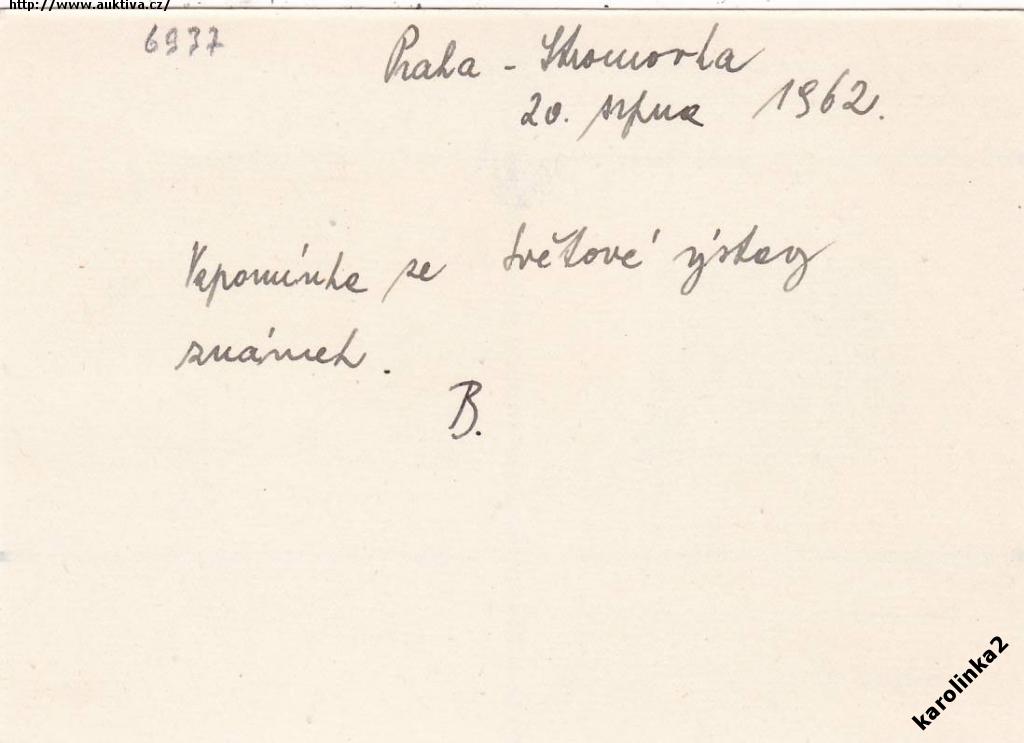 http://www.auktiva.cz/
6937
Praha - Stromovka
20. srpna 1962.
Vzpomínka ze světové výstavy
známek.
B.
karolinka2